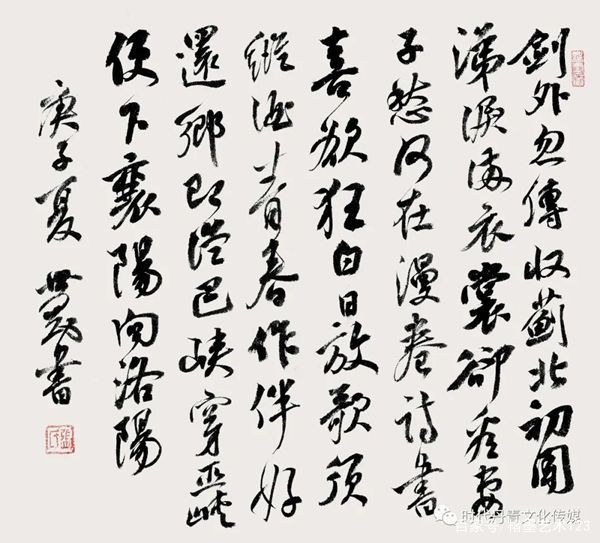 劍外忽傳收薊北初聞
涕淚滿衣裳卻看妻
子愁何在漫卷詩書
喜欲狂白日放歌須
縱酒青春作伴好
還鄉即從巴峽穿巫峽
便下襄陽向洛陽
庚子夏 書
时代丹青文化传媒
百家号/艺术123